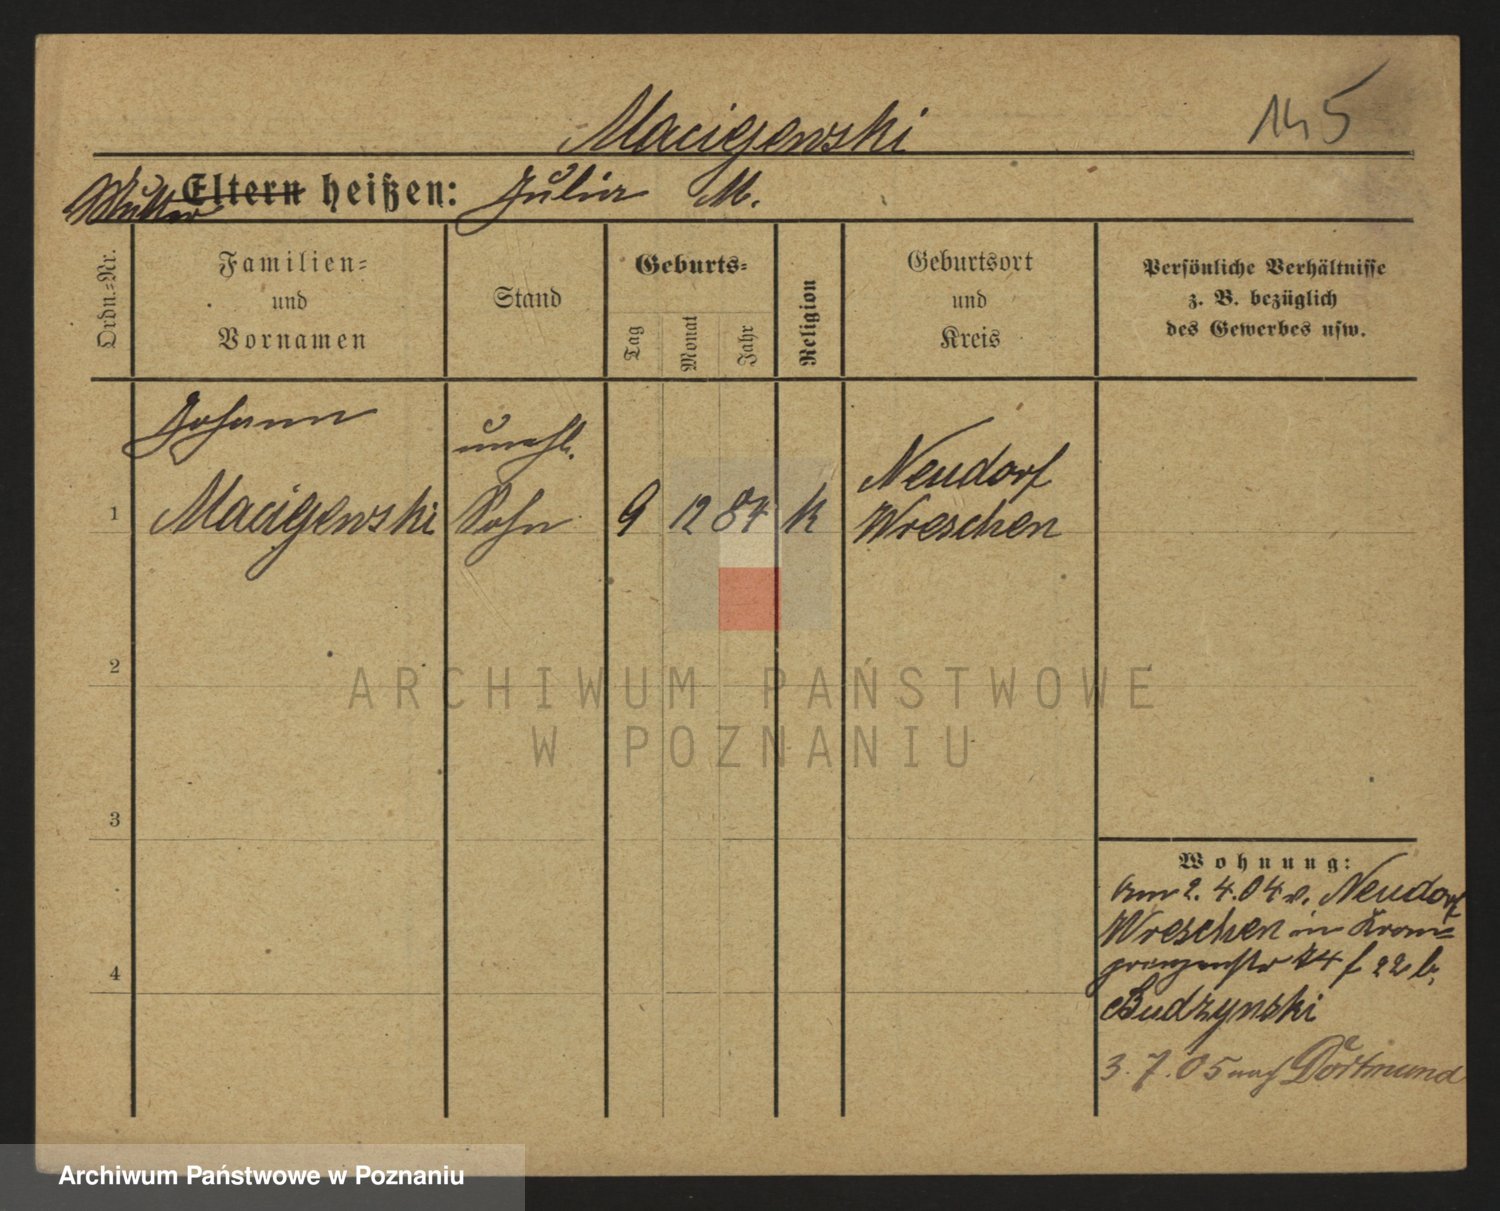 Maciejewski
145
Mutter Eltern heißen: Julia M.
Ordn.=Nr.
Familien=
und
Vornamen
Stand
Geburts=
Tag
Monat
Jahr
Religion
Geburtsort
und
Kreis
Persönliche Verhältnisse
z. B. bezüglich
des Gewerbes usw.
Johann
unehl.
Neudorf
1
Maciejewski Sohn 9 12 84 k Wreschen
2
ARCHIWUM PAŃSTWOWE
W POZNANIU
3
Wohnung:
Am 2.4.04 v. Neudorf
Wreschen in
22 b.
Budzynski
4
3.7.05 nach Dortmund
Archiwum Państwowe w Poznaniu